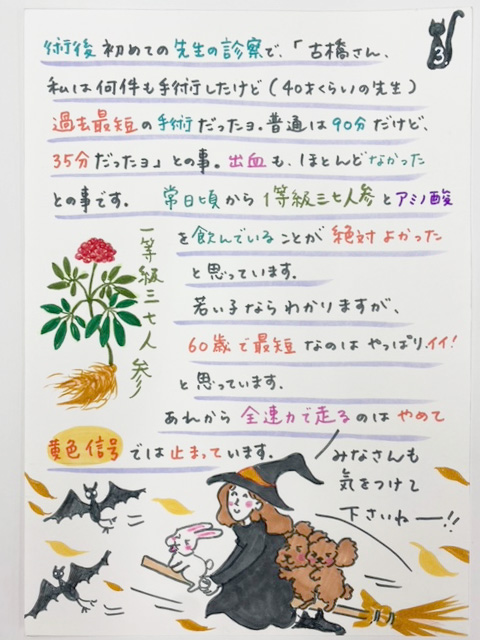 3.
術後初めての先生の診察で、「古橋さん、
私は何件も手術したけど(40才くらいの先生)
過去最短の手術だったョ。普通は90分だけど、
35分だったョ」との事。出血も、ほとんどなかった
との事です。 常日頃から1等級三七人参とアミノ酸
を飲んでいることが絶対よかった
と思っています。
一等級三七人参
若い子ならわかりますが、
60歳で最短なのはやっぱりイイ!
と思っています。
あれから全速力で走るのはやめて
黄色信号では止まっています。
みなさんも
気をつけて
下さいねー!!